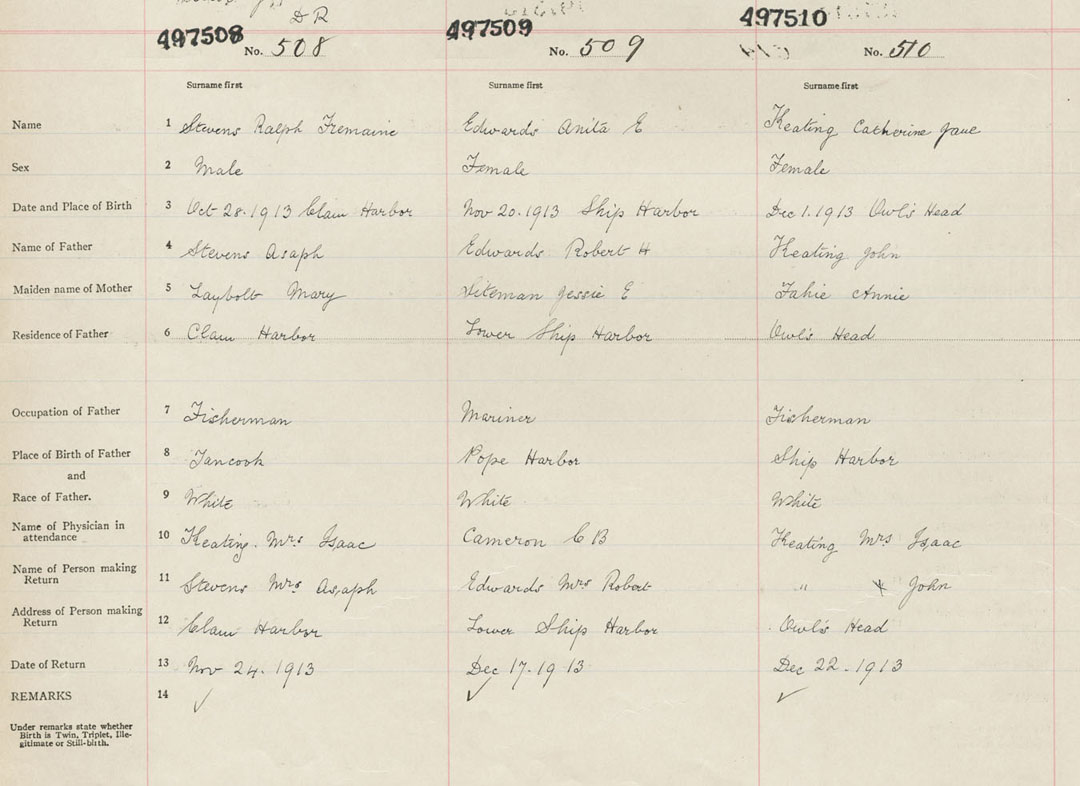 DR
497508 497509 497510
No. 508 No. 509 No. 510
Surname first Surname first Surname first
Name 1 Stevens Ralph Fremaine Edwards Anita E Keating Catherine Jane
Sex 2 Male Female Female
Date and Place of Birth 3 Oct 28. 1913 Clam Harbor Nov 20. 1913 Ship Harbor Dec 1. 1913 Owl's Head
Name of Father 4 Stevens Asaph Edwards Robert H Keating John
Maiden name of Mother 5 Laybolt Mary Siteman Jessie E Fahie Annie
Residence of Father 6 Clam Harbor Lower Ship Harbor Owl's Head
Occupation of Father 7 Fisherman Mariner Fisherman
Place of Birth of Father 8 Tancook Pope Harbor Ship Harbor
and
Race of Father. 9 White White White
Name of Physician in
attendance 10 Keating. Mrs Isaac Cameron C B Keating Mrs Isaac
Name of Person making
Return 11 Stevens Mrs Asaph Edwards Mrs Robert " " John
Address of Person making
Return 12 Clam Harbor Lower Ship Harbor Owl's Head
Date of Return 13 Nov 24. 1913 Dec 17. 1913 Dec 22 - 1913
REMARKS 14 ✓ ✓ ✓
Under remarks state whether
Birth is Twin, Triplet, Ille-
gitimate or Still-birth.